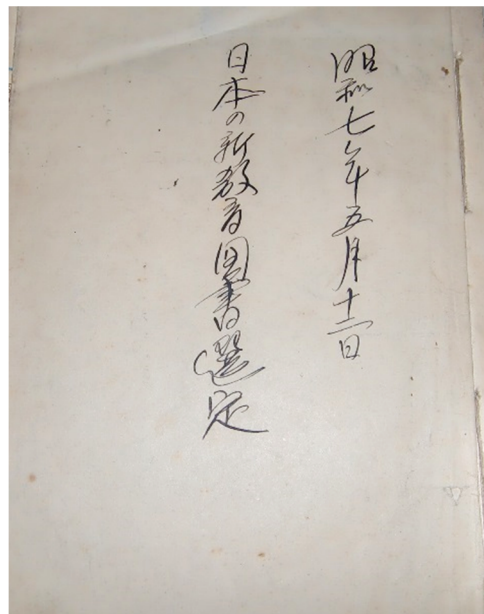 昭和七年五月十二日
日本の新教育圖書選定